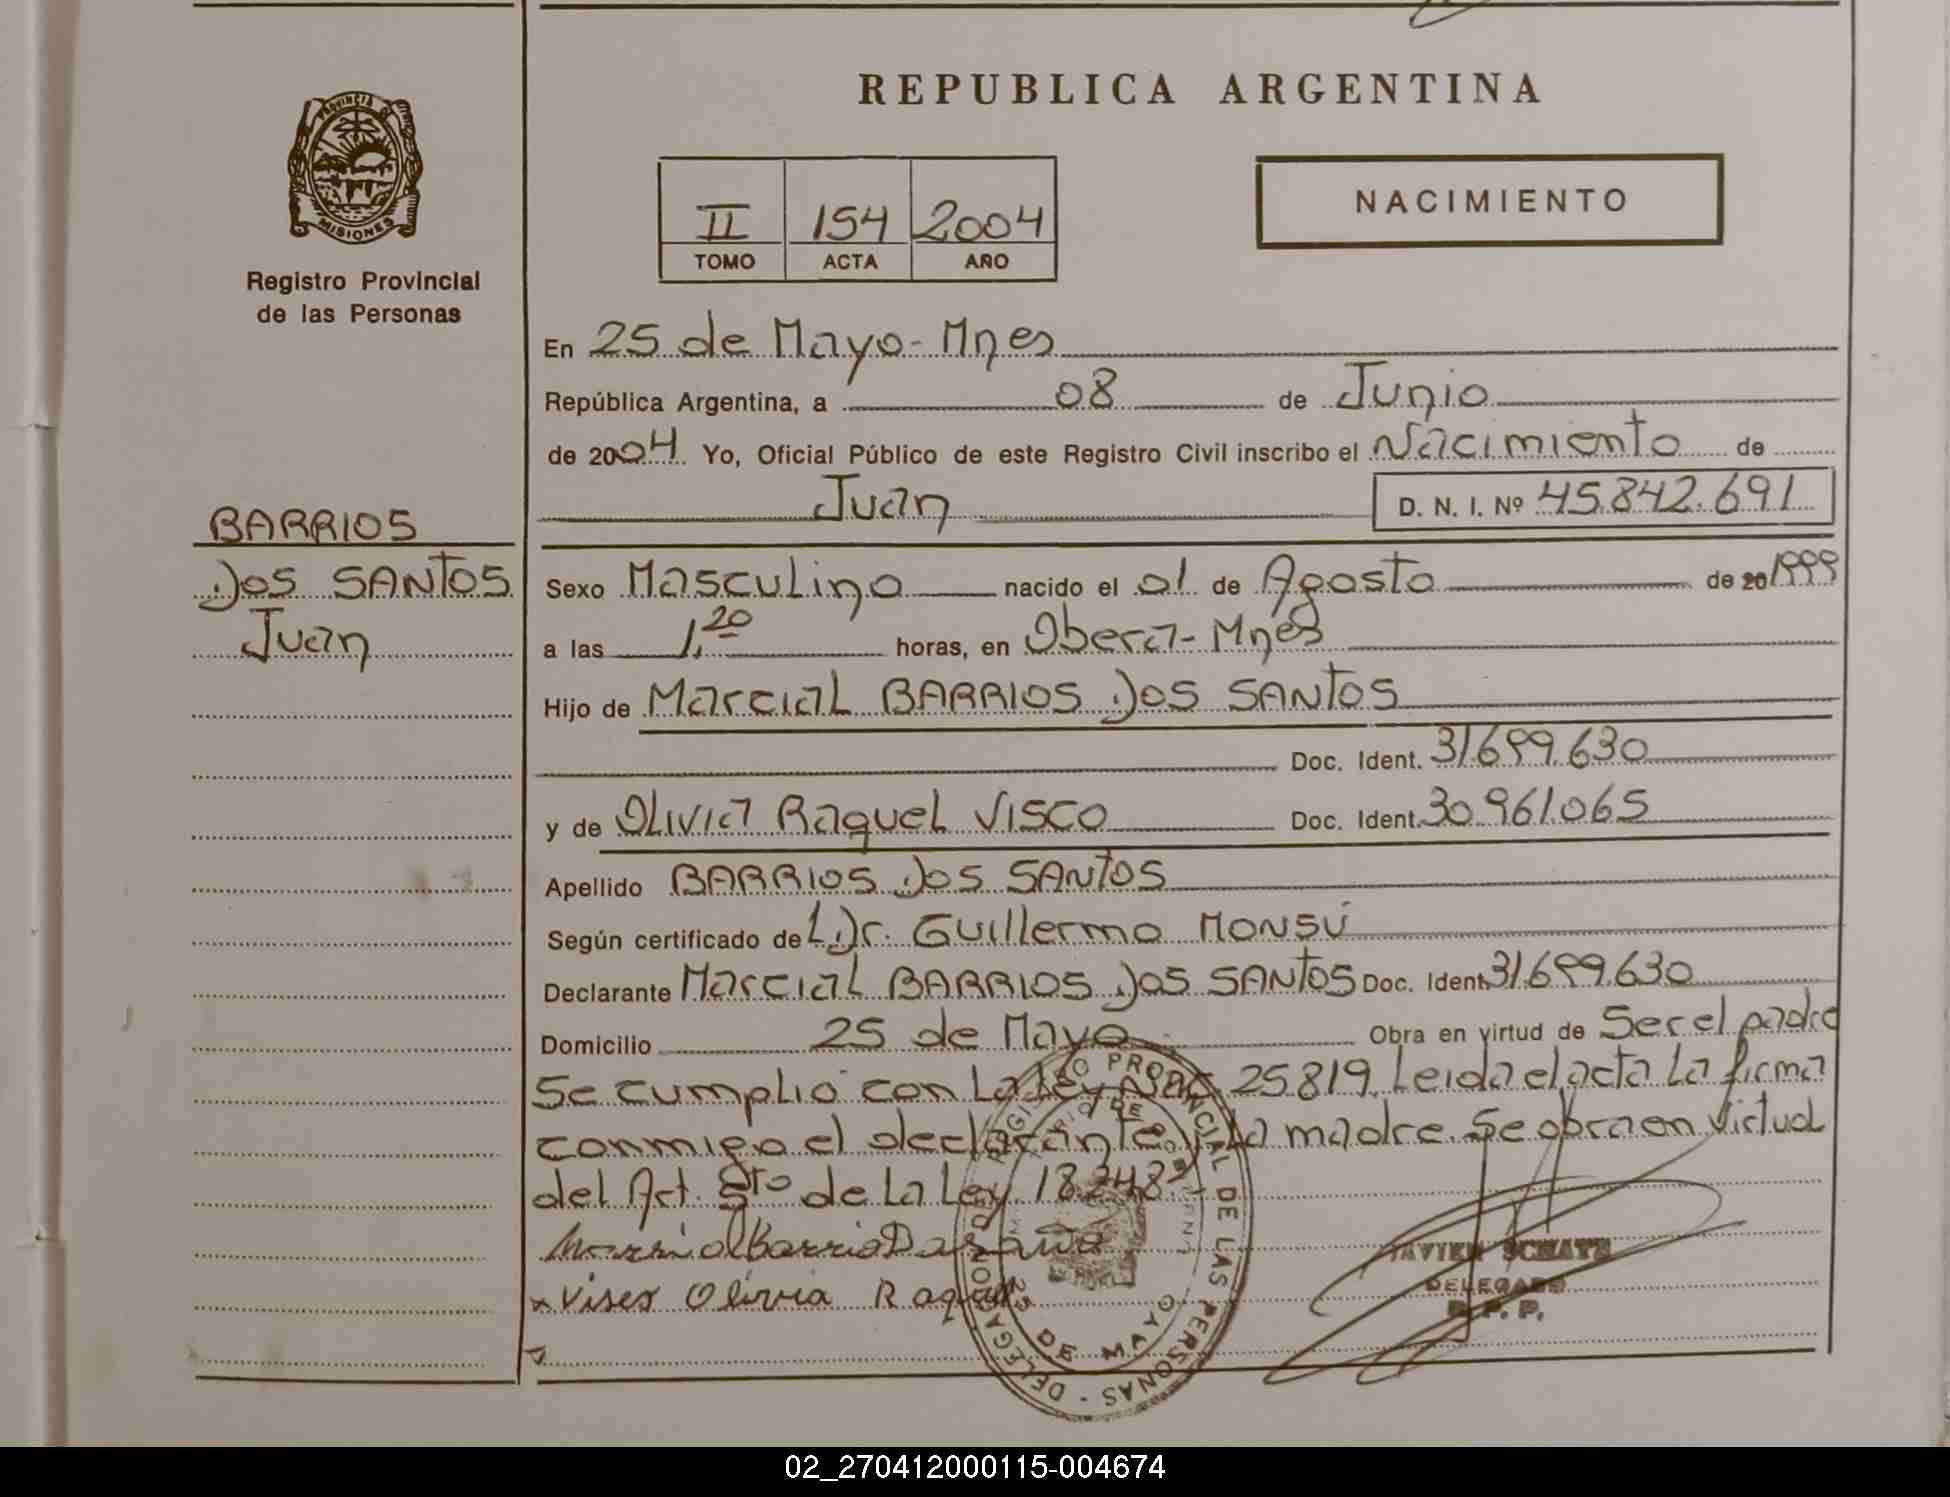 REPUBLICA ARGENTINA
PROVINCIA
MISIONES
Registro Provincial
de las Personas
II 154 2004
TOMO ACTA AÑO
NACIMIENTO
En 25 de Mayo - Mnes
República Argentina, a 08 de Junio
de 2004 Yo, Oficial Público de este Registro Civil inscribo el Nacimiento de
Juan D. N. I. Nº 45.842.691
BARRIOS
DOS SANTOS
Juan
Sexo Masculino nacido el 01 de Agosto de 20 1999
a las 1,20 horas, en Obera - Mnes
Hijo de Marcial BARRIOS DOS SANTOS
Doc. Ident. 31.699.630
y de Olivia Raquel VISCO Doc. Ident. 30.961.065
Apellido BARRIOS DOS SANTOS
Según certificado de Dr. Guillermo MONSÚ
Declarante Marcial BARRIOS DOS SANTOS Doc. Ident. 31.699.630
Domicilio 25 de Mayo Obra en virtud de Ser el padre
Se cumplio con La Ley Nac. 25819. Leida el acta La firma
conmigo el declarante y La madre. Se obra en virtud
del Art. 5to de La Ley 18.248.
x Visco Olivia Raquel
REGISTRO PROVINCIAL DE LAS PERSONAS - DELEGACION
25 DE MAYO
JAVIER
DELEGADO
R. P. P.
02_270412000115-004674